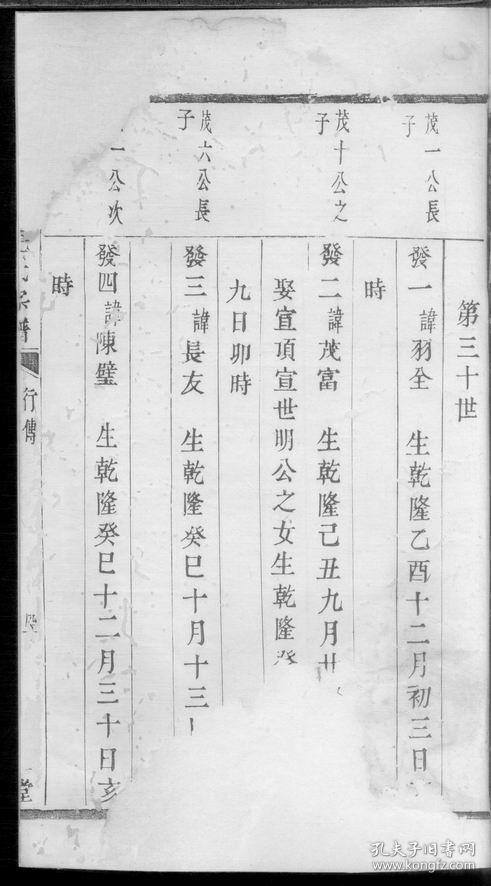 第三十世
茂一公長子
發一諱羽全 生乾隆乙酉十二月初三日
時
茂十公之子
發二諱茂富 生乾隆己丑九月廿
娶宣項宣世明公之女生乾隆
九日卯時
茂六公長子
發三諱長友 生乾隆癸巳十月十三
一公次
發四諱陳璧 生乾隆癸巳十二月三十日亥
時
宗譜
行傳
堂
孔夫子旧书网
www.kongfz.com